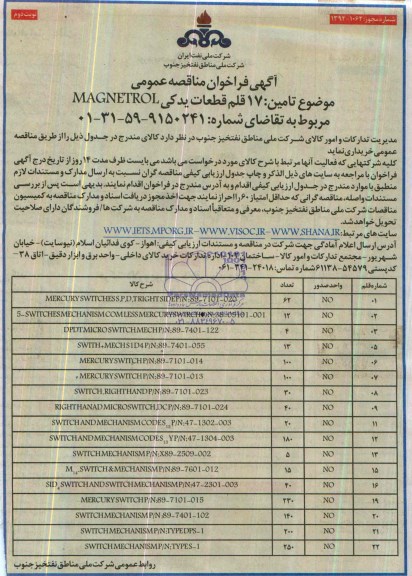 نوبت دوم
شماره مجوز: ۱۳۹۲.۱۰۶۲
شرکت ملی نفت ایران
شرکت ملی مناطق نفتخیز جنوب
آگهی فراخوان مناقصه عمومی
موضوع تامین: ۱۷ قلم قطعات یدکی MAGNETROL
مربوط به تقاضای شماره: ۹۱۵۰۲۴۱-۵۹-۳۱-۰۱
مدیریت تدارکات و امور کالای شرکت ملی مناطق نفتخیز جنوب در نظر دارد کالای مندرج در جدول ذیل را از طریق مناقصه
عمومی خریداری نماید
کلیه شرکتهایی که فعالیت آنها مرتبط با شرح کالای مورد درخواست می باشد می بایست ظرف مدت ۱۴ روز از تاریخ درج آگهی
فراخوان با مراجعه به سایت های ذیل الذکر و چاپ جدول ارزیابی کیفی مناقصه گران نسبت به ارسال مدارک و مستندات لازم
منطبق با موارد مندرج در جدول ارزیابی کیفی اقدام و به آدرس مندرج در فراخوان اقدام نمایند. بدیهی است پس از بررسی
مستندات واصله، مناقصه گرانی که حداقل امتیاز ۶۰ را احراز نمایند جهت اخذ مجوز دریافت اسناد و مدارک مناقصه به کمیسیون
مناقصات شرکت ملی مناطق نفتخیز جنوب، معرفی و متعاقباً اسناد و مدارک مناقصه به شرکت ها/ فروشندگان دارای صلاحیت
تحویل خواهد شد.
سایت های مرتبط: WWW.IETS.MPORG.IR-WWW.NISOC.IR-WWW.SHANA.IR
آدرس ارسال اعلام آمادگی جهت شرکت در مناقصه و مستندات ارزیابی کیفی: اهواز- کوی فدائیان اسلام (نیوسایت)- خیابان
شهریور- مجتمع تدارکات و امور کالا- ساختمان اداره تدارکات خرید کالای داخلی- واحد برق و ابزار دقیق- اتاق ۳۸-
کدپستی ۵۴۵۷۹-۶۱۱۳۸ شماره تماس: ۲۴۰۱۸-۳۴۱-۰۶۱
شماره قلم واحد صدور تعداد شرح کالا
۰۱ NO ۶۲ MERCURY SWITCHES S.P.D.T RIGHT SIDE P/N:89-7101-020
۰۲ NO ۱۲ 5-SWITCHES MECHANISM COM LESS MERCURY SWITCH 38-05101-001
۰۳ NO ۴ DPDT MICRO SWITCH MECH P/N:89-7401-122
۰۵ NO ۱۳ SWITH+MECH S1D4 P/N:89-7401-055
۰۶ NO ۱۰۰ MERCURY SWITCH P/N:89-7101-014
۰۷ NO ۱۰۰ MERCURY SWITCH P/N:89-7101-013
۰۸ NO ۳۰ SWITCH, RIGHT HAND P/N:89-7101-023
۰۹ NO ۴۰ RIGHT HANAD MICRO SWITCH, DC P/N:89-7101-024
۱۱ NO ۲۰ SWITCH AND MECHANISM CODES P/N:47-1302-003
۱۲ NO ۱۸۰ SWITCH AND MECHANISM CODES Y P/N:47-1304-003
۱۳ NO ۵ SWITCH MECHANISM P/N:X89-2509-002
۱۵ NO ۱۵ SWITCH & MECHANISM P/N:89-7601-012
۱۶ NO ۴۰ SWITCH AND SWITCH MECHANISM P/N:47-2301-003
۱۹ NO ۲۳۰ MERCURY SWITCH P/N:89-7101-015
۲۰ NO ۱۴۰ SWITCH MECHANISM P/N:89-7401-102
۲۱ NO ۲۰۰ SWITCH MECHANISM P/N:TYPE DPS-1
۲۲ NO ۲۵۰ SWITCH MECHANISM P/N:TYPE S-1
روابط عمومی شرکت ملی مناطق نفتخیز جنوب